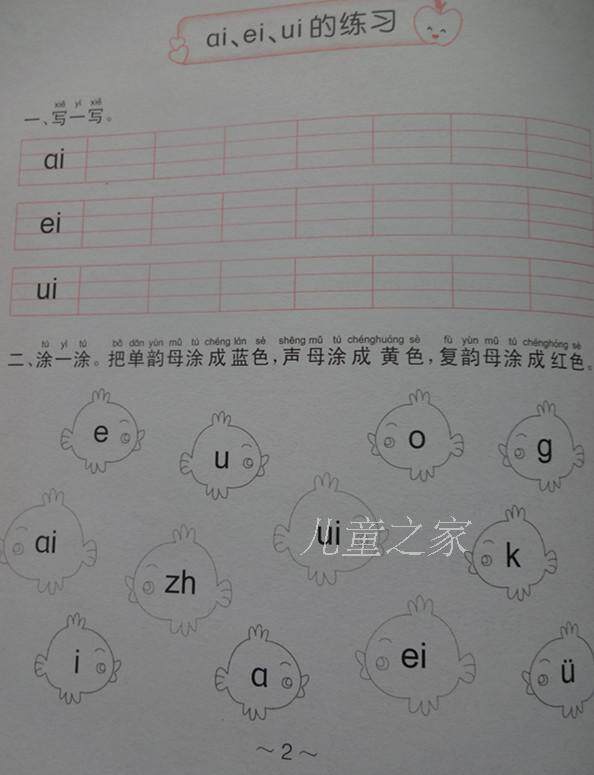 ai、ei、ui的练习
xiě yì xiě
一、写一写。
ai
ei
ui
tú yì tú bǎ dān yùn mǔ tú chéng lán sè shēng mǔ tú chéng huáng sè fù yùn mǔ tú chéng hóng sè
二、涂一涂。把单韵母涂成蓝色，声母涂成黄色，复韵母涂成红色。
e u o g
ai zh ui k
儿童之家
i ɑ ei ü
～2～